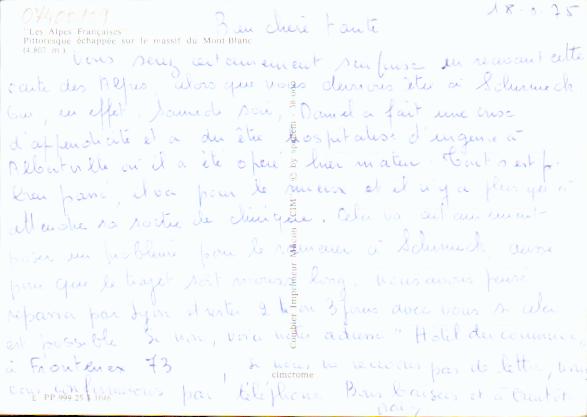 07400109
18-8-75
Les Alpes Françaises
Pittoresque échappée sur le massif du Mont-Blanc
(4.807 m.)
Bien chère tante
Vous serez certainement surprise en recevant cette
carte des Alpes, alors que nous devrions être à Schirmeck
Oui, en effet, Samedi soir, Daniel a fait une crise
d'appendicite et a du être hospitalisé d'urgence à
Albertville où il a été opéré hier matin. Tout s'est
bien passé, il va pour le mieux et il n'y a plus qu'à
attendre sa sortie de clinique. Cela va certainement
poser un problème pour le ramener à Schirmeck, aussi
pour que le trajet soit moins long, nous avons pensé
repasser par Lyon et rester 2 ou 3 jours avec vous si cela
est possible. Si non, voici notre adresse "Hotel du commerce,
à Frontenex 73
, Si nous ne recevons pas de lettre, nous
vous confirmerons par téléphone. Bons baisers et à bientôt
cimcrome
Combier Imprimeur Mâcon